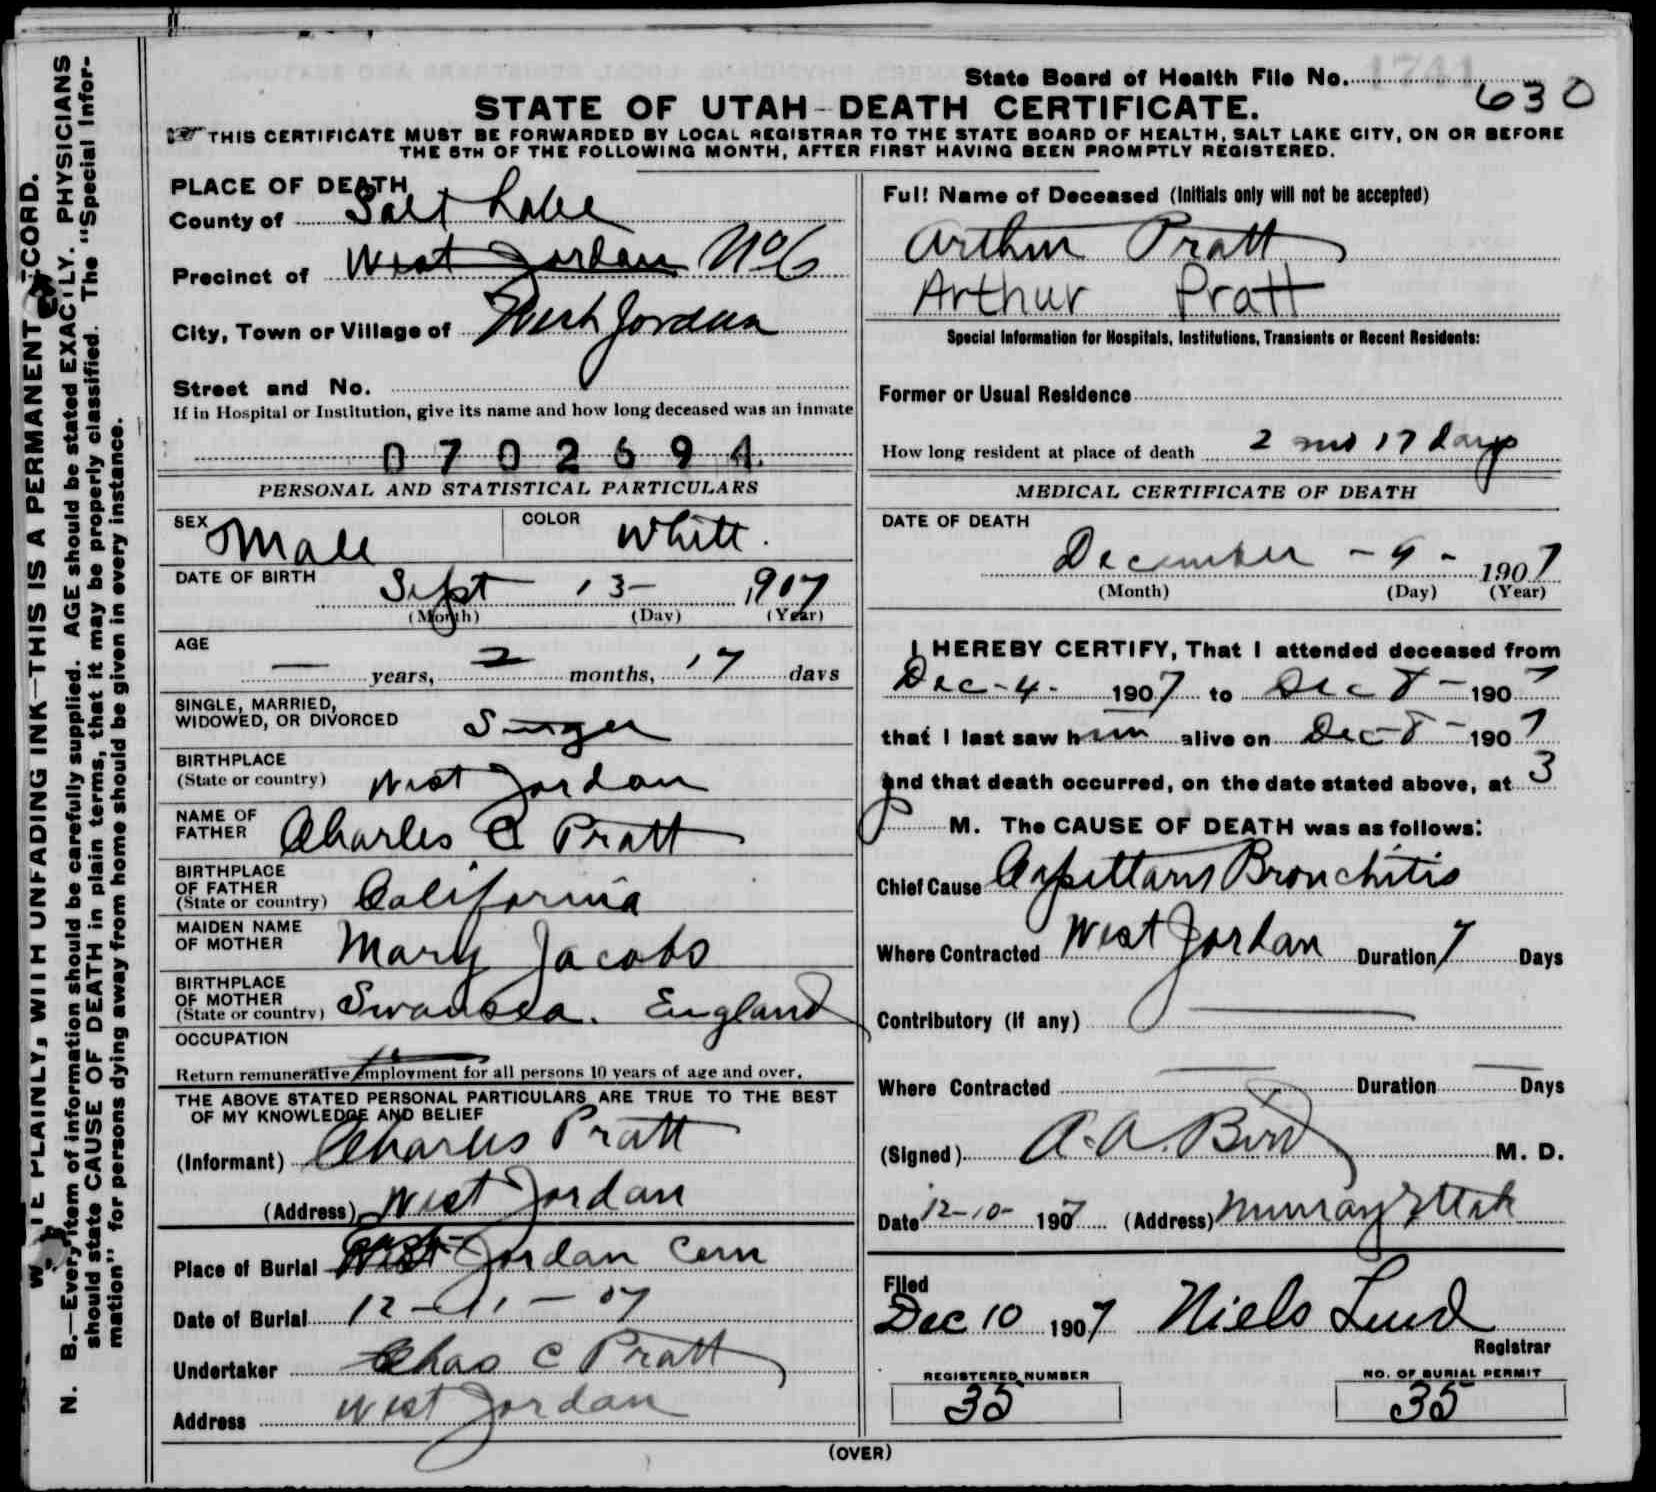 State Board of Health File No. 1741
630
STATE OF UTAH-DEATH CERTIFICATE.
THIS CERTIFICATE MUST BE FORWARDED BY LOCAL REGISTRAR TO THE STATE BOARD OF HEALTH, SALT LAKE CITY, ON OR BEFORE
THE 5TH OF THE FOLLOWING MONTH, AFTER FIRST HAVING BEEN PROMPTLY REGISTERED.
PLACE OF DEATH
County of Salt Lake
Precinct of West Jordan No 6
City, Town or Village of West Jordan
Street and No.
If in Hospital or Institution, give its name and how long deceased was an inmate
0702694
PERSONAL AND STATISTICAL PARTICULARS
SEX Male COLOR White.
DATE OF BIRTH
Sept 13 - 1907
(Month) (Day) (Year)
AGE
— years, 2 months, 17 days
SINGLE, MARRIED,
WIDOWED, OR DIVORCED
BIRTHPLACE
(State or country) West Jordan
NAME OF
FATHER Charles C Pratt
BIRTHPLACE
OF FATHER
(State or country) California
MAIDEN NAME
OF MOTHER Mary Jacobs
BIRTHPLACE
OF MOTHER
(State or country) Swansea. England
OCCUPATION
Return remunerative employment for all persons 10 years of age and over.
THE ABOVE STATED PERSONAL PARTICULARS ARE TRUE TO THE BEST
OF MY KNOWLEDGE AND BELIEF
(Informant) Charles Pratt
(Address) West Jordan
Place of Burial West Jordan Cem
Date of Burial 12-11-07
Undertaker Chas C Pratt
Address West Jordan
Full Name of Deceased (Initials only will not be accepted)
Arthur Pratt
Arthur Pratt
Special Information for Hospitals, Institutions, Transients or Recent Residents:
Former or Usual Residence
How long resident at place of death 2 mo 17 days
MEDICAL CERTIFICATE OF DEATH
DATE OF DEATH
December - 9 - 1907
(Month) (Day) (Year)
I HEREBY CERTIFY, That I attended deceased from
Dec-4- 1907 to Dec 8 - 1907
that I last saw him alive on Dec-8- 1907
and that death occurred, on the date stated above, at 3
P M. The CAUSE OF DEATH was as follows:
Chief Cause Bronchitis
Where Contracted West Jordan Duration 7 Days
Contributory (if any) —
Where Contracted — Duration — Days
(Signed) A. A. Bird M. D.
Date 12-10- 1907 (Address) Murray Utah
Filed
Dec 10 1907 Niels Lind
Registrar
REGISTERED NUMBER
35
NO. OF BURIAL PERMIT
35
(OVER)
WRITE PLAINLY, WITH UNFADING INK—THIS IS A PERMANENT RECORD.
N. B.—Every item of information should be carefully supplied. AGE should be stated EXACTLY. PHYSICIANS
should state CAUSE OF DEATH in plain terms, that it may be properly classified. The "Special Infor-
mation" for persons dying away from home should be given in every instance.